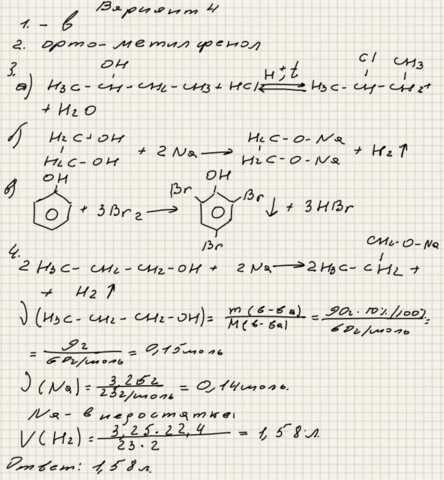 Вариант 4
1. - в
2. орто-метилфенол
3.
OH Cl CH3
а) H3C - CH - CH2 - CH3 + HCl ⇌ H+, t H3C - CH - CH2 +
+ H2O
б) H2C - OH H2C - O - Na
+ 2 Na → + H2↑
H2C - OH H2C - O - Na
в) OH OH
Br Br
+ 3 Br2 → ↓ + 3 HBr
Br
4.
CH2 - O - Na
2 H3C - CH2 - CH2 - OH + 2 Na → 2 H3C - CH2 +
+ H2↑
ν (H3C - CH2 - CH2 - OH) = m (в-ва) / M (в-ва) = 90г · 10% / 100% / 60г/моль =
= 9г / 60г/моль = 0,15 моль
ν (Na) = 3,25г / 23г/моль = 0,14 моль.
Na - в недостатке
V (H2) = 3,25 · 22,4 / 23 · 2 = 1,58 л.
Ответ: 1,58 л.